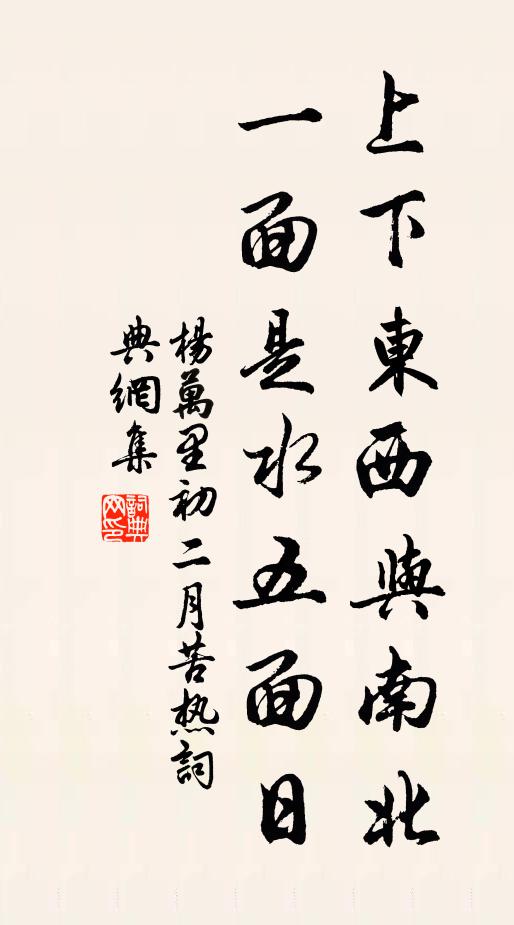 上下東西與南北
一面是水五面日
楊萬里初二月苦熱詞
典網集
詞典網印